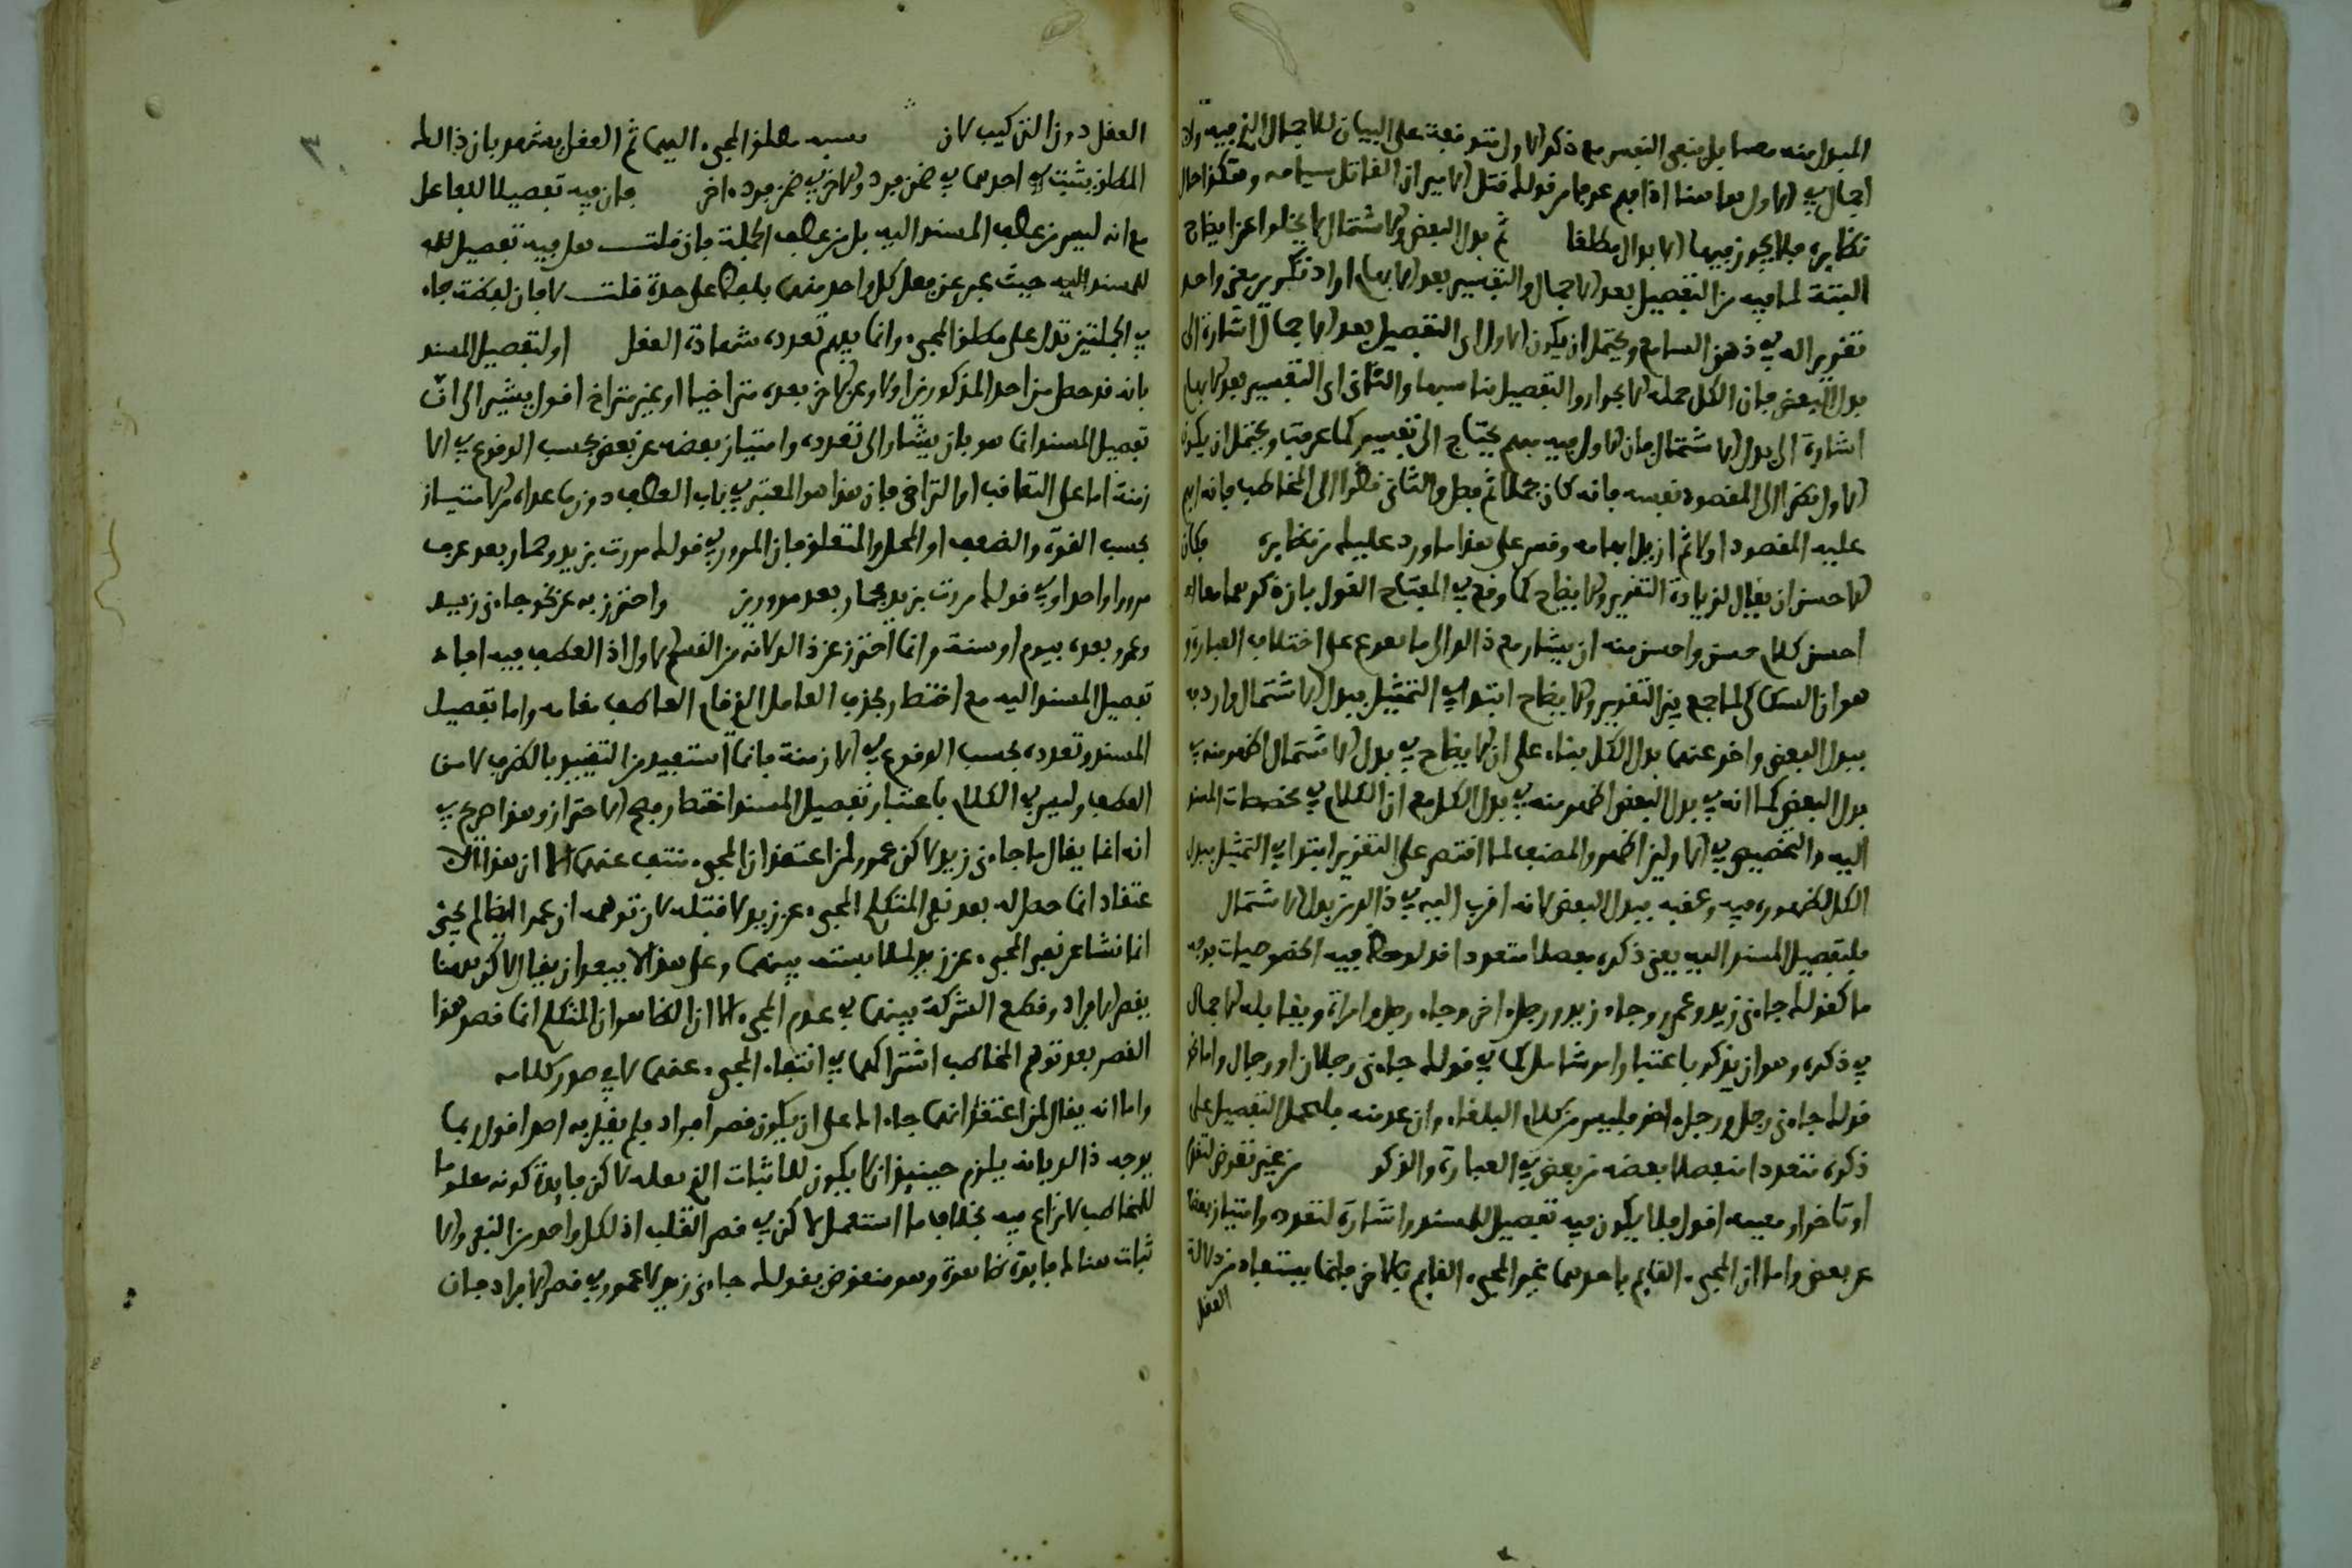 المبدل منه مبهما بل تبقى النفس مع ذكر الاول متوقعة على البيان للاجمال الذي فيه ولا
اجمال في الاول هاهنا اذا يفهم عرفا من قولك قتل الامير ان القاتل سيافه وهكذا حال
نظايره فلا يجوز فيها الابدال مطلقا ثم بدل البعض والاشتمال لا يخلوا عن ايضاح
البتة لما فيه من التفصيل بعد الاجمال والتفسير بعد الابهام اراد تكرير معنى واحد
تقريرا له في ذهن السامع ويحتمل ان يكون الاول اي التفصيل بعد الاجمال اشارة الى
بدل البعض فان الكل جملة الاجزاء والتفصيل يناسبها والثاني اي التفسير بعد الابهام
اشارة الى بدل الاشتمال فان الاول فيه مبهم يحتاج الى تفسير كما عرفت ويحتمل ان يكون
الاول نظرا الى المقصود نفسه فانه كان مجملا ثم فصل والثاني نظرا الى المخاطب فانه ابهم
عليه المقصود اولا ثم ازيل ابهامه وقس على هذا ما ورد عليك من نظايره فكان
الاحسن ان يقال لزيادة التقرير والايضاح كما وقع في المفتاح القول بان ذكرهما معا
احسن كلام حسن واحسن منه ان يشار مع ذلك الى ما هو على اختلاف العبارة و
هو ان السكاكي لما جمع بين التقرير والايضاح ابتدا في التمثيل ببدل الاشتمال واردفه
ببدل البعض واخر عنهما بدل الكل بناء على ان الايضاح في بدل الاشتمال اظهر منه في
بدل البعض كما انه في بدل البعض اظهر منه في بدل الكل مع ان الكلام في مخصصات المسند
اليه والتخصيص في الاولين اظهر والمصنف لما اقتصر على التقرير ابتدا في التمثيل ببدل
الكل لظهوره فيه وعقبه ببدل البعض لانه اقرب اليه في ذلك من بدل الاشتمال
فلتفصيل المسند اليه يعني ذكره مفصلا متعددا قد لوحظ فيه الخصوصيات بوجه
ما كقولك جاءني زيد وعمرو وجاء زيد ورجل اخر وجاء رجل وامراة ويقابله الاجمال
في ذكره وهو ان يذكر باعتبار امر شامل كما في قولك جاءني رجلان او رجال واما نحو
قولك جاءني رجل ورجل اخر فليس من كلام البلغاء وان عد منه فليحمل التفصيل على
ذكره متعددا منفصلا بعضه من بعض في العبارة والذكر من غير تعرض لتقدم
او تاخر او معية اقول فلا يكون فيه تفصيل للمسند واشارة لتعدده وامتياز بعضه
عن بعض واما ان المجيء القايم باحدهما غير المجيء القايم بالاخر فانما يستفاد من دلالة
العقل
العقل دون التركيب لان نسبة مطلق المجيء اليهما ثم العقل يشهد بان ذلك
المطلق يثبت في احدهما في ضمن فرد والاخر في ضمن فرد اخر فان فيه تفصيلا للفاعل
مع انه ليس من عطف المسند اليه بل من عطف الجملة فان قلت هل فيه تفصيل
للمسند اليه حيث عبر عن فعل كل واحد منهما بلفظ على حدة قلت لا فان لفظة جاء
في الجملتين تدل على مطلق المجيء وانما يفهم تعدده شهادة العقل او لتفصيل المسند
بانه قد حصل من احد المذكورين اولا وعن الاخر بعده متراخيا او غير متراخ اقول يشير الى ان
تفصيل المسند انما هو بان يشار الى تعدده وامتياز بعضه عن بعض بحسب الوقوع في الا
زمنة اما على التعاقب او التراخي فان هذا هو المعتبر في باب العطف دون ما عداه من الامتياز
بحسب القوة والضعف او المحل والمتعلق فان المرور في قولك مررت بزيد وحمار يعد عرفا
مرورا واحدا وفي قولك مررت بزيد فحمار يعد مرورين واحترز به عن نحو جاءني زيد
وعمرو بعده بيوم او سنة وانما احترز عن ذلك لانه من القسم الاول اذ العطف فيه افاد
تفصيل المسند اليه مع اختصار بحذف العامل الذي قام العاطف مقامه واما تفصيل
المسند وتعدده بحسب الوقوع في الازمنة فانما استفيد من التقييد بالظرف لا من
العطف وليس في الكلام باعتبار تفصيل المسند اختصار فصح الاحترازو هذا صرح في
انه انما يقال ما جاءني زيد لاكن عمرو لمن اعتقد ان المجيء منتف عنهما الا ان هذا الا
عتقاد انما حصل له بعد نفي المتكلم المجيء عن زيد لا قبله لان توهمه ان عمرا ايضا لم يجئ
انما نشا عن نفي المجيء عن زيد لملابسته بينهما وعلى هذا لا يبعد ان يقال لاكن هنا
لقصر الافراد وقطع الشركة بينهما في عدم المجيء الا ان الظاهر ان المتكلم انما قصد هذا
القصر بعد توهم المخاطب اشتراكهما في انتفاء المجيء عنهما لا في صدر كلامه
واما انه يقال لمن اعتقد انهما جاءاك على ان يكون قصر افراد فلم يقل به احد اقول ربما
يوجه ذلك بانه يلزم حينئذ ان لا يكون للاثبات الذي بعد لاكن فايدة كونه معلوما
للمخاطب لا نزاع فيه بخلاف ما استعمل لاكن في قصر القلب اذ لكل واحد من النفي والا
ثبات هنالك فايدة ظاهرة وهو منقوض بقولك جاءني زيد لا عمرو في قصر الافراد فان